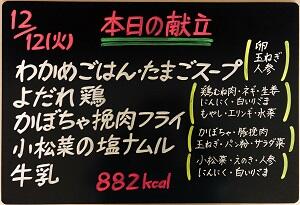 12/12(火)
本日の献立
わかめごはん・たまごスープ
卵
玉ねぎ
人参
よだれ鶏
鶏むね肉・ネギ・生姜
にんにく・白いりごま
もやし・エリンギ・水菜
かぼちゃ挽肉フライ
かぼちゃ・豚挽肉
玉ねぎ・パン粉・サラダ菜
小松菜の塩ナムル
小松菜・えのき・人参
にんにく・白いりごま
牛乳
882kcal